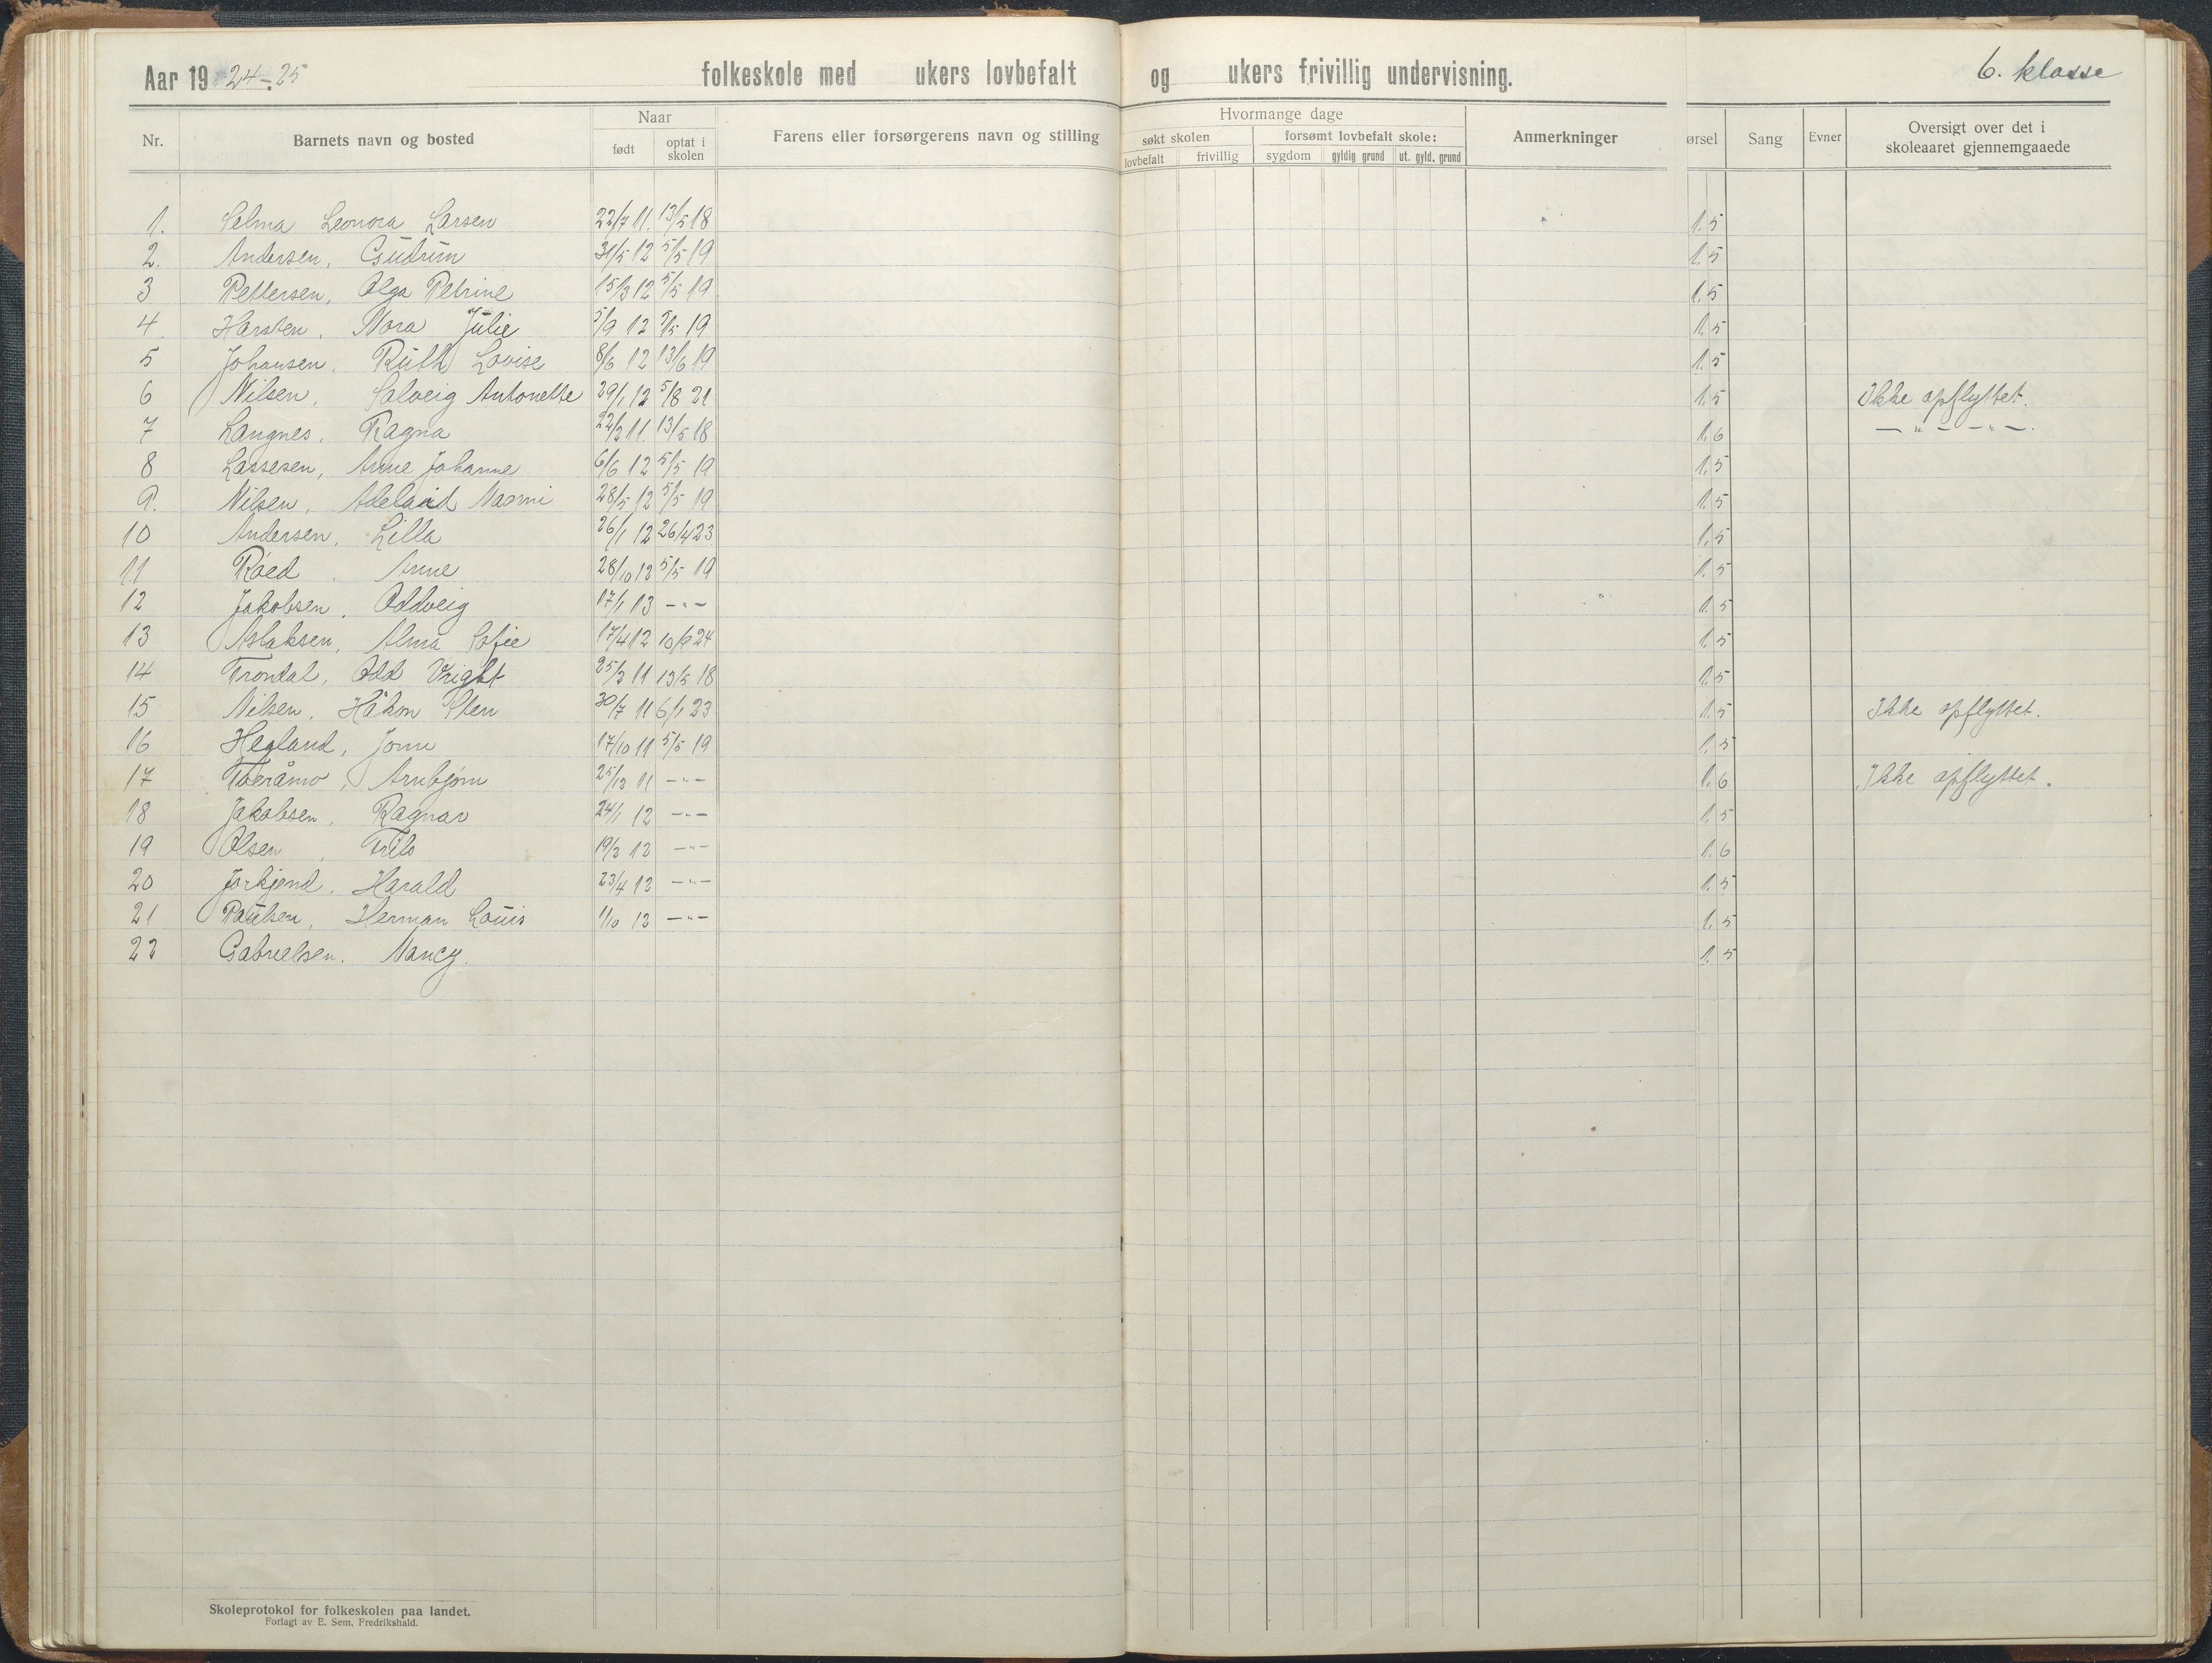 Aar 19 24-25 folkeskole med ukers lovbefalt og ukers frivillig undervisning. 6. klasse
Nr. Barnets navn og bosted Naar født optat i skolen Farens eller forsørgerens navn og stilling Hvormange dage søkt skolen lovbefalt frivillig forsømt lovbefalt skole: sygdom gyldig grund ut. gyld. grund Anmerkninger ørsel Sang Evner Oversigt over det i skoleaaret gjennemgaaede
1. Selma Leonora Larsen 22/7 11. 13/5 18 1.5
2. Andersen, Gudrun 31/5 12 5/5 19 1.5
3 Pettersen, Olga Petrine 15/3 12 5/5 19 1.5
4. Harsten, Nora Julie 5/9 12 5/5 19 1.5
5 Johansen, Ruth Lovise 8/6 12 13/6 19 1.5
6 Nilsen, Solveig Antonette 29/1 12 5/8 21 1.5 Ikke opflyttet.
7 Langnes, Ragna 22/2 11. 13/5 18 1.6 — " — — " —.
8 Lassesen, Anne Johanne 6/6 12 5/5 19 1.5
9. Nilsen, Adelaid Naomi 28/5 12 5/5 19 1.5
10 Andersen, Lilla 26/1 12 26/4 23 1.5
11 Røed, Anne 28/10 12 5/5 19 1.5
12 Jakobsen, Oddveig 17/1 13 - " - 1.5
13 Aslaksen, Alma Sofie 17/4 12 10/9 24 1.5
14 Trondal, Odd Vright 25/2 11 13/5 18 1.5
15 Nilsen, Håkon Sten 30/7 11 6/1 23 1.5 Ikke opflyttet.
16 Hegland, Jonn 17/10 11 5/5 19 1.5
17 Tveråmo, Arnbjørn 25/12 11 - " - 1.6 Ikke opflyttet.
18 Jakobsen, Ragnar 24/1 12 - " - 1.5
19 Olsen, 19/2 12 - " - 1.6
20 Jorkjend, Harald 23/4 12 - " - 1.5
21 Paulsen, Herman Louis 1/10 12 - " - 1.5
22 Gabrielsen. Nancy. 1.5
Skoleprotokol for folkeskolen paa landet.
Forlagt av E. Sem, Fredrikshald.